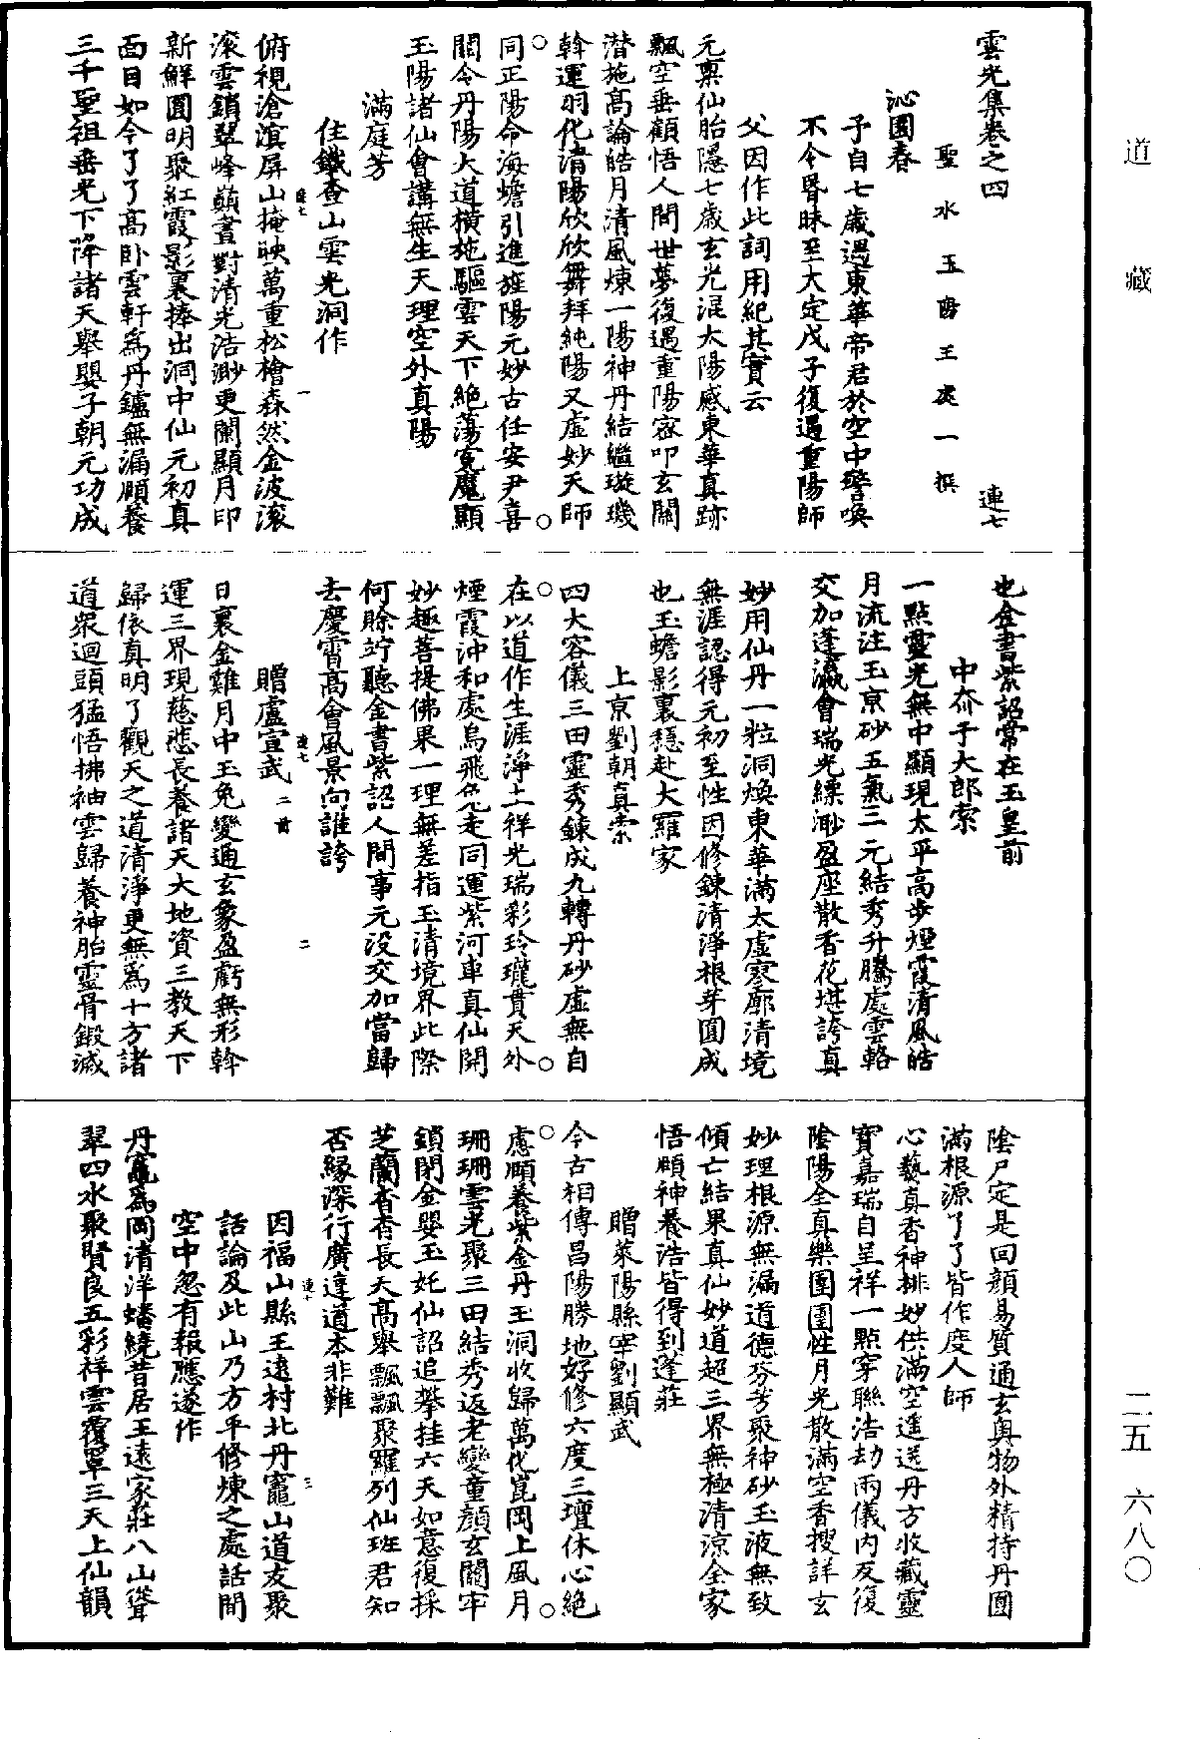 雲光集卷之四
連七
聖水玉陽王處一撰
沁園春
子自七歲遇東華帝君於空中警喚
不令昬昧至大定戊子復遇重陽師
父因作此詞用紀其實云
元稟仙胎隱七歲玄光混太陽感東華真跡
飄空垂顧悟人間世夢復遇重陽密叩玄關
潜施高論皓月清風煉一陽神丹結繼璇璣
斡運羽化清陽欣欣舞拜純陽又虛妙天師
同正陽命海蟾引進旌陽元妙古任安尹喜
關令丹陽大道横施驅雲天下絶蕩冤魔顯
玉陽諸仙會講無生天理空外真陽
滿庭芳
住鐵查山雲光洞作
俯視滄溟屏山掩映萬重松檜森然金波滚
滚雲鎖翠峰巔晝對清光浩渺更闌顯月印
新鮮圓明聚紅霞影裏捧出洞中仙元初真
面目如今了了高卧雲軒為丹鑪無漏頤養
三千聖祖垂光下降諸天舉嬰子朝元功成
也金書紫詔常在玉皇前
中夼于大郎索
一點靈光無中顯現太平高步煙霞清風皓
月流注玉京砂五氣三元結秀升騰處雲輅
交加蓬瀛會瑞光縹渺盈座散香花堪誇真
妙用仙丹一粒洞煥東華滿太虛寥廓清境
無涯認得元初至性因修鍊清淨根芽圓成
也玉蟾影裏穩赴大羅家
上京劉朝真索
四大容儀三田靈秀鍊成九轉丹砂虛無自
在以道作生涯淨土祥光瑞彩玲瓏貫天外
煙霞沖和處烏飛兔走同運紫河車真仙開
妙趣菩提佛果一理無差指玉清境界此際
何賒竚聽金書紫詔人間事元没交加當歸
去慶霄高會風景向誰誇
贈盧宣武二首
日裏金雞月中玉兔變通玄象盈虧無形斡
運三界現慈悲長養諸天大地資三教天下
歸依真明了觀天之道清淨更無為十方諸
道衆迴頭猛悟拂袖雲歸養神胎靈骨鍜滅
陰尸定是回顔易質通玄奥物外精持丹圓
滿根源了了皆作度人師
心藝真香神排妙供滿空遥送丹方收藏靈
寶嘉瑞自呈祥一點穿聯浩劫兩儀内反復
陰陽全真樂團圓性月光散滿空香搜詳玄
妙理根源無漏道德芬芳聚神砂玉液無致
傾亡結果真仙妙道超三界無極清涼全家
悟頤神養浩皆得到蓬莊
贈萊陽縣宰劉顯武
今古相傳昌陽勝地好修六度三壇休心絶
慮頤養紫金丹玉洞收歸萬化崑岡上風月
珊珊雲光聚三田結秀返老變童顔玄關牢
鎖閉金嬰玉奼仙詔追攀挂六天如意復採
芝蘭杳杳長天高舉飄飄聚羅列仙班君知
否緣深行廣達道本非難
因福山縣王遠村北丹竈山道友聚
話論及此山乃方平修煉之處話間
空中忽有報應遂作
丹竈為岡清洋蟠繞昔居王遠家莊八山聳
翠四水聚賢良五彩祥雲覆罩三天上仙韻
連七
一
連七
二
連十
三
道藏
二五
六八〇